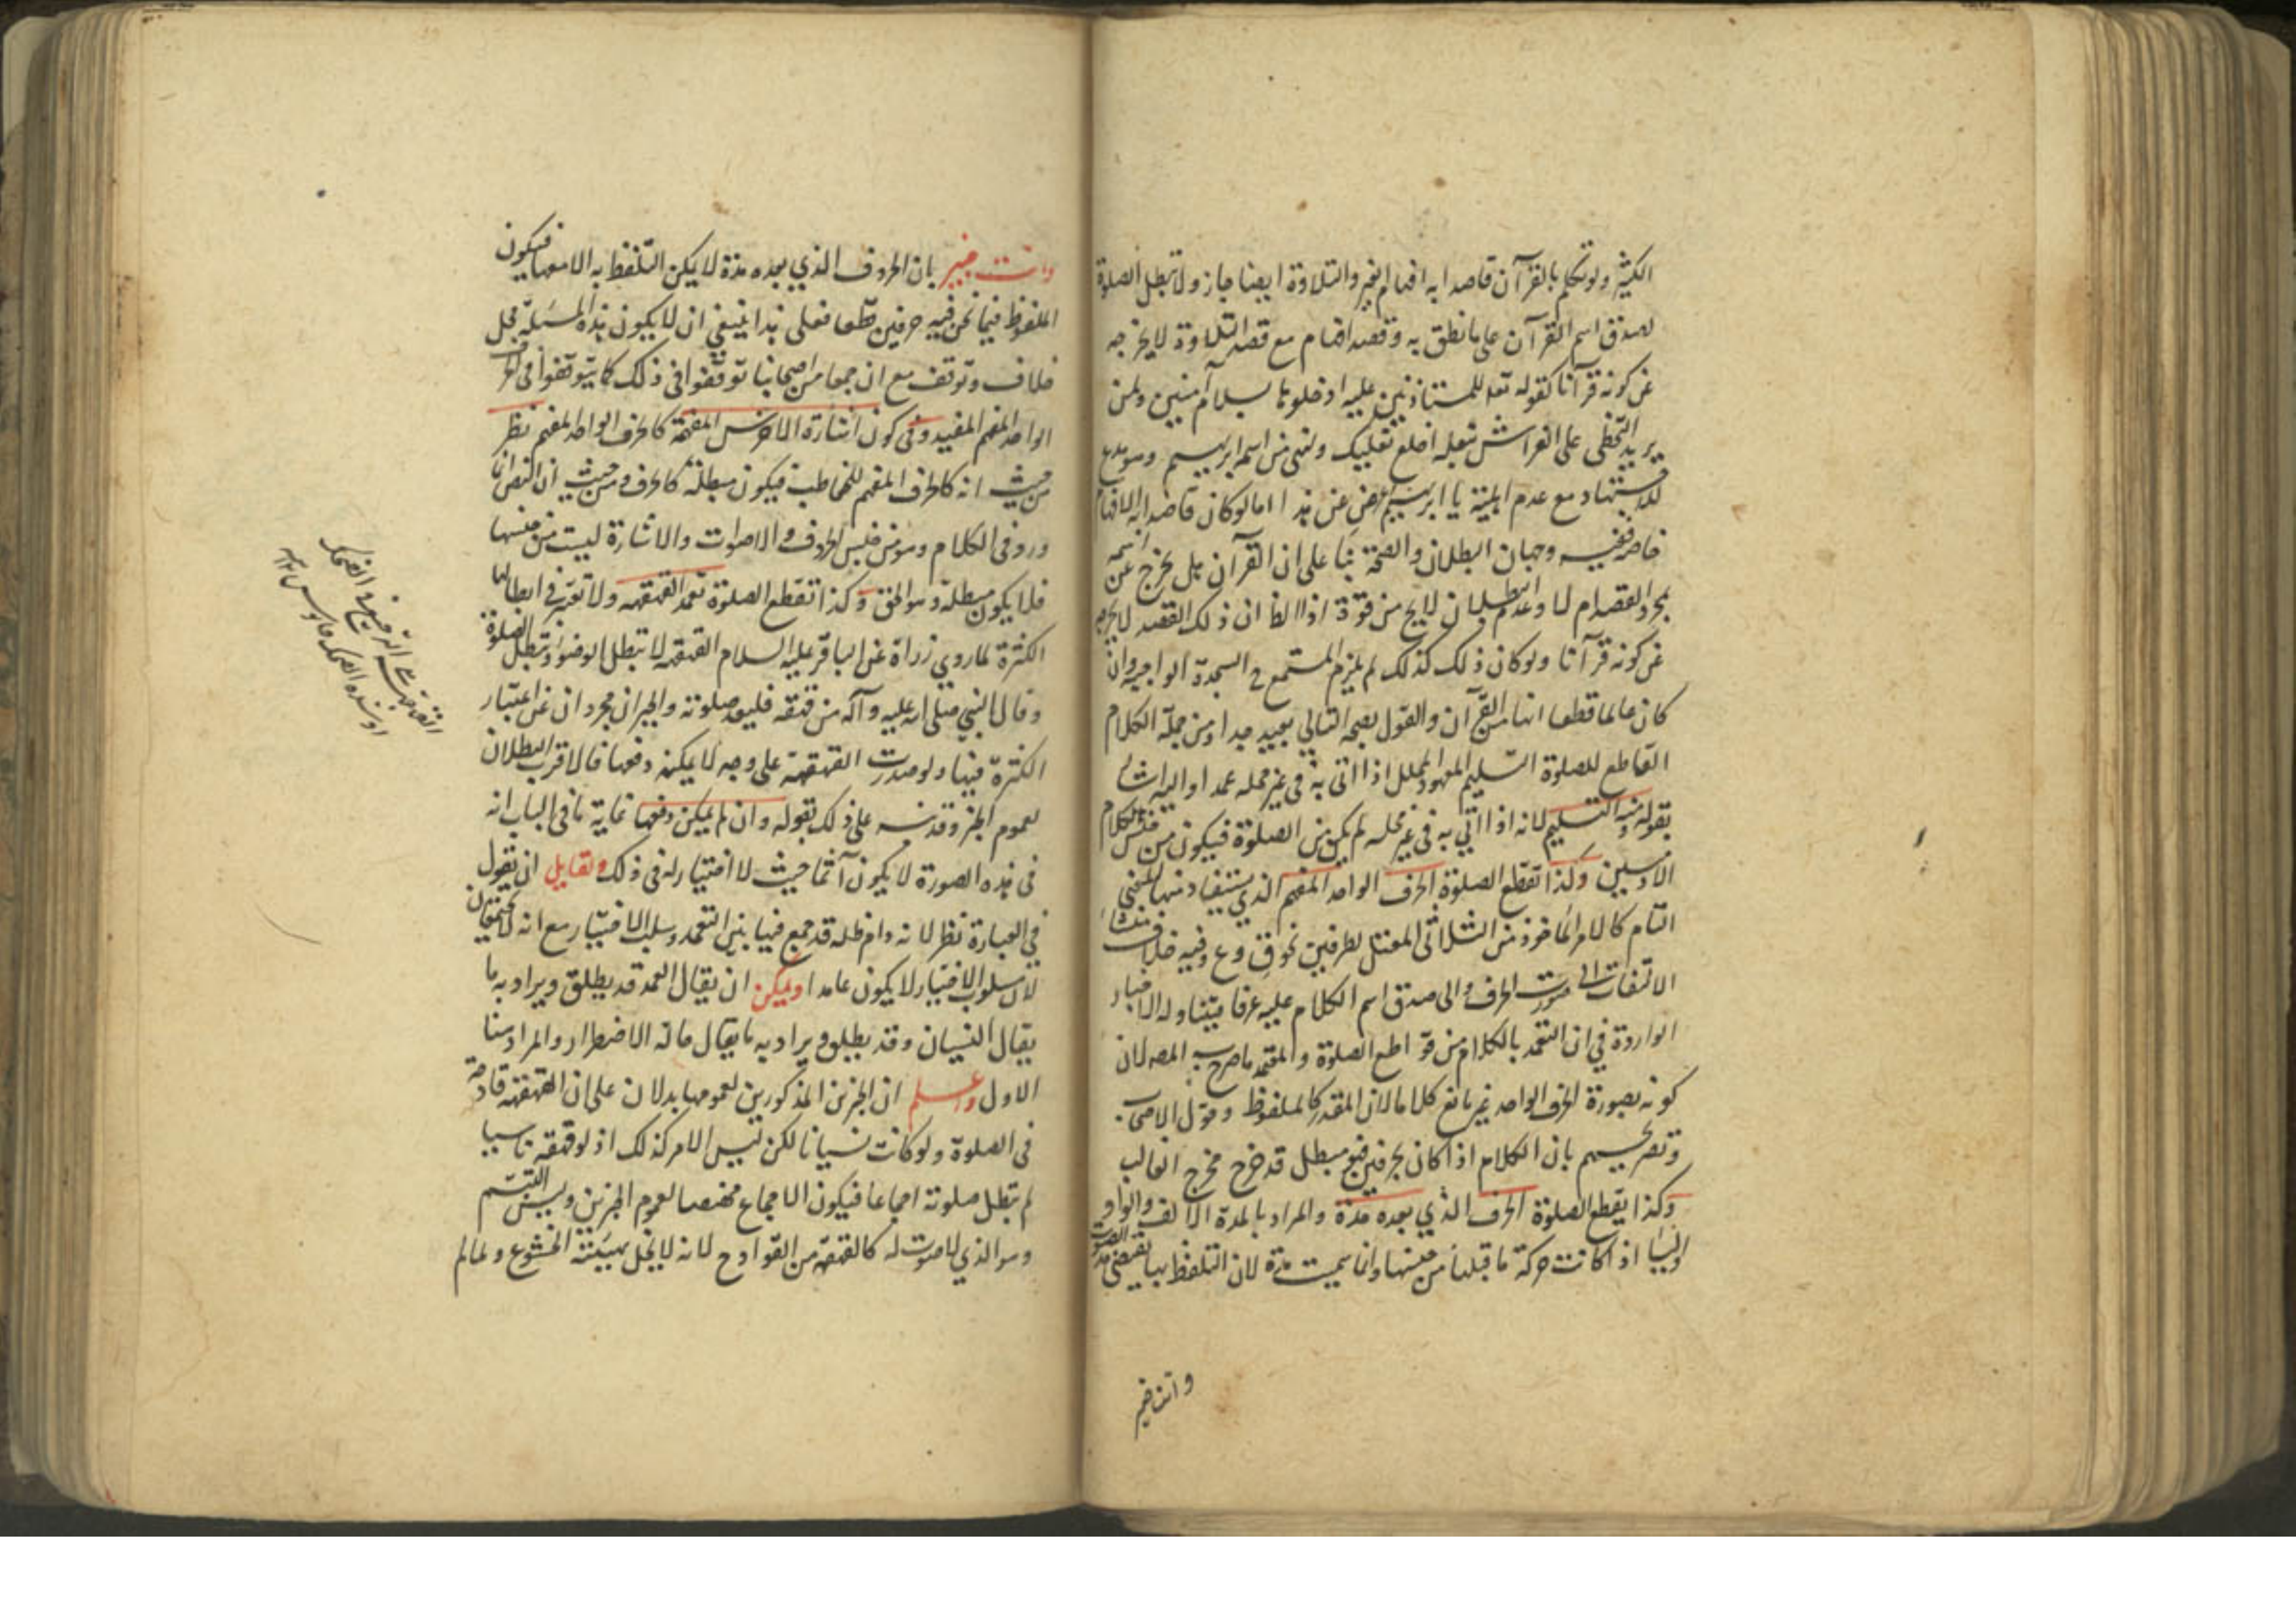 الكثير ولو تكلم بالقرآن قاصدا به افهام الغير والتلاوة ايضا جاز ولا تبطل الصلوة
لصدق اسم القرآن على ما نطق به وقصد افهام مع قصد التلاوة لا يخرجه
عن كونه قرآنا كقوله تعه للمستاذنين عليه ادخلوها بسلام آمنين ولمن
يريد التخطى على الفراش بنعله اخلع نعليك ولمن اسمه ابرهيم وهو
للاستشهاد مع عدم البينة يا ابرهيم اعرض عن هذا اما لو كان قاصدا به الافهام
خاصة ففيه وجهان البطلان والصحة بنا على ان القرآن هل يخرج عن اسمه
بمجرد القصد ام لا وعدم البطلان لا يخ من قوة اذ الظ ان ذلك القصد لا يخرجه
عن كونه قرآنا ولو كان ذلك كذلك لم يلزم المستمع ح السجدة الواجبة وان
كان عالما قطعا انها من القرآن والقول بصحة التالي بعيد جدا ومن جملة الكلام
القاطع للصلوة التسليم المعهود المحلل اذا اتى به في غير محله عمدا واليه اشار
بقوله ومنه التسليم لانه اذا اتي به في غير محله لم يكن من الصلوة فيكون من جنس كلام
الآدميين وكذا تقطع الصلوة الحرف الواحد المفهم الذي يستفاد منها المعنى
التام كالامر الماخوذ من الثلاثى المعتل لطرفين نحو ق وع وفيه خلاف منشا
الالتفات الى صورت الحرف والى صدق اسم الكلام عليه عرفا فيتناوله الاخبار
الواردة في ان التعمد بالكلام من قواطع الصلوة والمعتمد ما صرح به المصه لان
كونه بصورة الحرف الواحد غير مانع كلاما لان المقدر كالملفوظ وقول الاصحاب
وتصريحهم بان الكلام اذا كان بحرفين فهو مبطل قد خرج مخرج الغالب
وكذا يقطع الصلوة الحرف الذي بعده مدة والمراد بالمدة الالف والواو
والياء اذا كانت حركة ما قبلها من جنسها وانما سميت مدة لان التلفظ بها يقتضى مد الصوت
وانت خبير
وانت خبير بان الحروف الذي بعده مدة لا يمكن التلفظ به الا معها فيكون
الملفوظ فيما نحن فيه حرفين قطعا فعلى هذا ينبغي ان لا يكون هذه المسئلة محل
خلاف وتوقف مع ان جمعا من اصحابنا توقفوا في ذلك كما يتوقفوا في الحرف
الواحد المفهم المفيد وفى كون اشارة الاخرس المفهمة كالحرف الواحد المفهم نظر
من حيث انه كالحرف المفهم للمخاطب فيكون مبطلة كالحرف ومن حيث ان النص انما
ورد في الكلام وهو من جنس الحروف والاصوات والاشارة ليست من جنسها
فلا يكون مبطلة وهو الحق وكذا تقطع الصلوة تعمد القهقهه ولا تعتبر في ابطالها
الكثرة لما روي زرارة عن الباقر عليه السلام القهقهه لا تبطل الوضوء وتبطل الصلوة
وقال النبي صلى الله عليه وآله من قهقه فليعد صلوته والخبران مجردان عن اعتبار
الكثرة فيها ولو صدرت القهقهة على وجه لا يمكنه دفعها فالاقرب البطلان
لعموم الخبر وقد نبه على ذلك بقوله وان لم يمكن دفعها غاية ما في الباب انه
في هذه الصورة لا يكون آثما حيث لا اختيار له في ذلك ولقايل ان يقول
في العبارة نظر لانه دام ظله قد جمع فيها بين التعمد وسلب الاختيار مع انه لا يجتمعان
لان مسلوب الاختيار لا يكون عامدا ويمكن ان يقال العمد قد يطلق ويراد به ما
يقابل النسيان وقد يطلق ويراد به ما يقابل حالة الاضطرار والمراد هنا
الاول واعلم ان الخبرين المذكورين لعمومها يدلان على ان القهقهة قادحة
في الصلوة ولو كانت نسيانا لكن ليس الامر كذلك اذ لو قهقه ناسيا
لم تبطل صلوته اجماعا فيكون الاجماع مخصصا لعموم الخبرين وليس التبسم
وهو الذي لا صوت له كالقهقهة من القوادح لانه لا يخل بهيئة الخشوع ولما لم